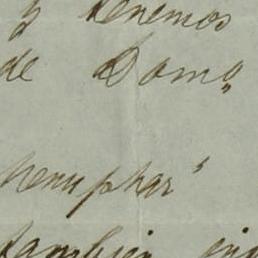 y tenemos
de Domo
Nenuphar"
tambien